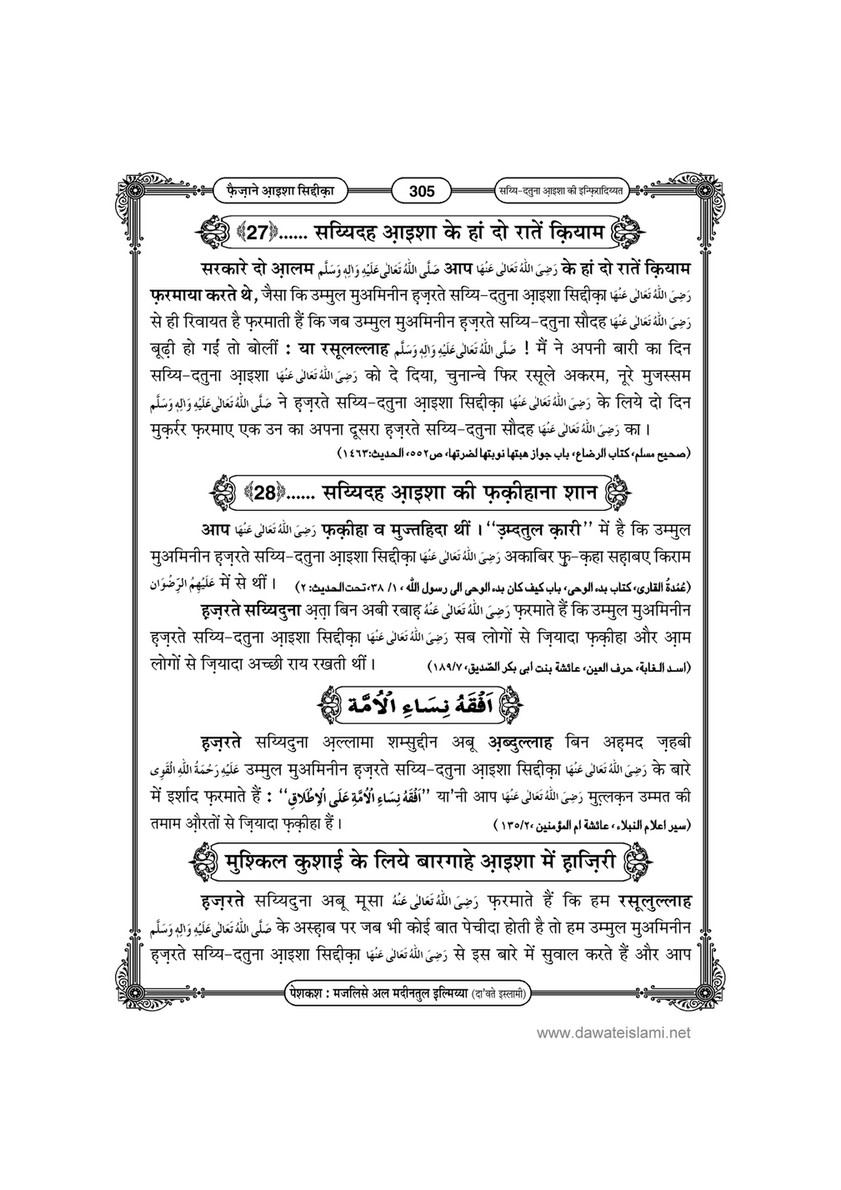 फ़ैज़ाने आ़इशा सिद्दीक़ा
305
सय्यि-दतुना आ़इशा की इन्फ़िरादिय्यत
﴾27﴿...... सय्यिदह आ़इशा के हां दो रातें क़ियाम
सरकारे दो आ़लम صَلَّى اللهُ تَعَالٰى عَلَيْهِ وَاٰلِهٖ وَسَلَّم आप رَضِیَ اللهُ تَعَالٰى عَنْهَا के हां दो रातें क़ियाम
फ़रमाया करते थे, जैसा कि उम्मुल मुअमिनीन ह़ज़रते सय्यि-दतुना आ़इशा सिद्दीक़ा رَضِیَ اللهُ تَعَالٰى عَنْهَا
से ही रिवायत है फ़रमाती हैं कि जब उम्मुल मुअमिनीन ह़ज़रते सय्यि-दतुना सौदह رَضِیَ اللهُ تَعَالٰى عَنْهَا
बूढ़ी हो गईं तो बोलीं : या रसूलल्लाह صَلَّى اللهُ تَعَالٰى عَلَيْهِ وَاٰلِهٖ وَسَلَّم ! मैं ने अपनी बारी का दिन
सय्यि-दतुना आ़इशा رَضِیَ اللهُ تَعَالٰى عَنْهَا को दे दिया, चुनान्चे फिर रसूले अकरम, नूरे मुजस्सम
صَلَّى اللهُ تَعَالٰى عَلَيْهِ وَاٰلِهٖ وَسَلَّم ने ह़ज़रते सय्यि-दतुना आ़इशा सिद्दीक़ा رَضِیَ اللهُ تَعَالٰى عَنْهَا के लिये दो दिन
मुक़र्रर फ़रमाए एक उन का अपना दूसरा ह़ज़रते सय्यि-दतुना सौदह رَضِیَ اللهُ تَعَالٰى عَنْهَا का ।
(صحيح مسلم، كتاب الرضاع، باب جواز هبتها نوبتها لضرتها، ص٥٥٢، الحديث:١٤٦٣)
﴾28﴿...... सय्यिदह आ़इशा की फ़क़ीहाना शान
आप رَضِیَ اللهُ تَعَالٰى عَنْهَا फ़क़ीहा व मुज्तहिदा थीं । ‘‘उ़म्दतुल क़ारी’’ में है कि उम्मुल
मुअमिनीन ह़ज़रते सय्यि-दतुना आ़इशा सिद्दीक़ा رَضِیَ اللهُ تَعَالٰى عَنْهَا अकाबिर फु-क़हा सह़ाबए किराम
عَلَيْهِمُ الرِّضْوَان में से थीं । (عُمْدَةُ القارى، كتاب بدء الوحى، باب كيف كان بدء الوحى الى رسول الله ، ١/ ٣٨، تحت الحديث: ٢)
ह़ज़रते सय्यिदुना अ़त़ा बिन अबी रबाह़ رَضِیَ اللهُ تَعَالٰى عَنْهُ फ़रमाते हैं कि उम्मुल मुअमिनीन
ह़ज़रते सय्यि-दतुना आ़इशा सिद्दीक़ा رَضِیَ اللهُ تَعَالٰى عَنْهَا सब लोगों से ज़ियादा फ़क़ीहा और आ़म
लोगों से ज़ियादा अच्छी राय रखती थीं । (اسد الغابة، حرف العين، عائشة بنت ابى بكر الصّديق، ١٨٩/٧)
اَفْقَهُ نِسَاءِ الْاُمَّة
ह़ज़रते सय्यिदुना अ़ल्लामा शम्सुद्दीन अबू अ़ब्दुल्लाह बिन अह़मद ज़हबी
عَلَيْهِ رَحْمَةُ اللهِ الْقَوِى उम्मुल मुअमिनीन ह़ज़रते सय्यि-दतुना आ़इशा सिद्दीक़ा رَضِیَ اللهُ تَعَالٰى عَنْهَا के बारे
में इर्शाद फ़रमाते हैं : ‘‘اَفْقَهُ نِسَاءِ الْاُمَّةِ عَلَى الْاِطْلَاقِ’’ या'नी आप رَضِیَ اللهُ تَعَالٰى عَنْهَا मुत़्लक़न उम्मत की
तमाम औ़रतों से ज़ियादा फ़क़ीहा हैं । (سير اعلام النبلاء، عائشة ام المؤمنين، ١٣٥/٢)
मुश्किल कुशाई के लिये बारगाहे आ़इशा में ह़ाज़िरी
ह़ज़रते सय्यिदुना अबू मूसा رَضِیَ اللهُ تَعَالٰى عَنْهُ फ़रमाते हैं कि हम रसूलुल्लाह
صَلَّى اللهُ تَعَالٰى عَلَيْهِ وَاٰلِهٖ وَسَلَّم के अस्ह़ाब पर जब भी कोई बात पेचीदा होती है तो हम उम्मुल मुअमिनीन
ह़ज़रते सय्यि-दतुना आ़इशा सिद्दीक़ा رَضِیَ اللهُ تَعَالٰى عَنْهَا से इस बारे में सुवाल करते हैं और आप
पेशकश : मजलिसे अल मदीनतुल इल्मिय्या (दा'वते इस्लामी)
www.dawateislami.net